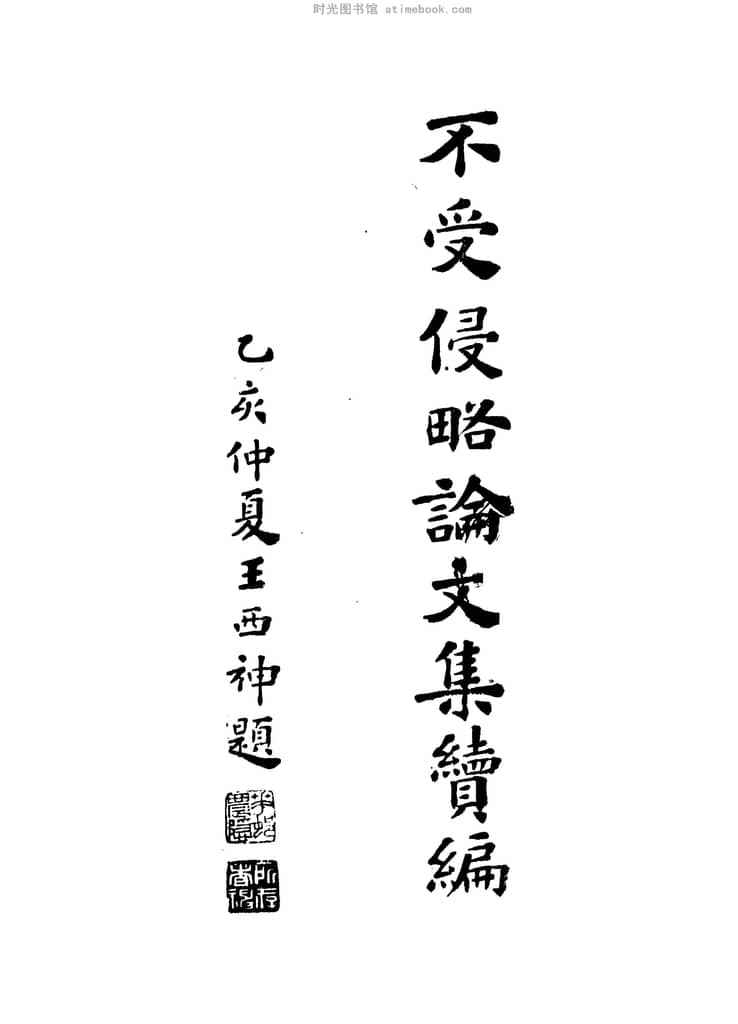 时光图书馆 atimebook.com
不受侵略論文集續編
乙亥仲夏王西神題